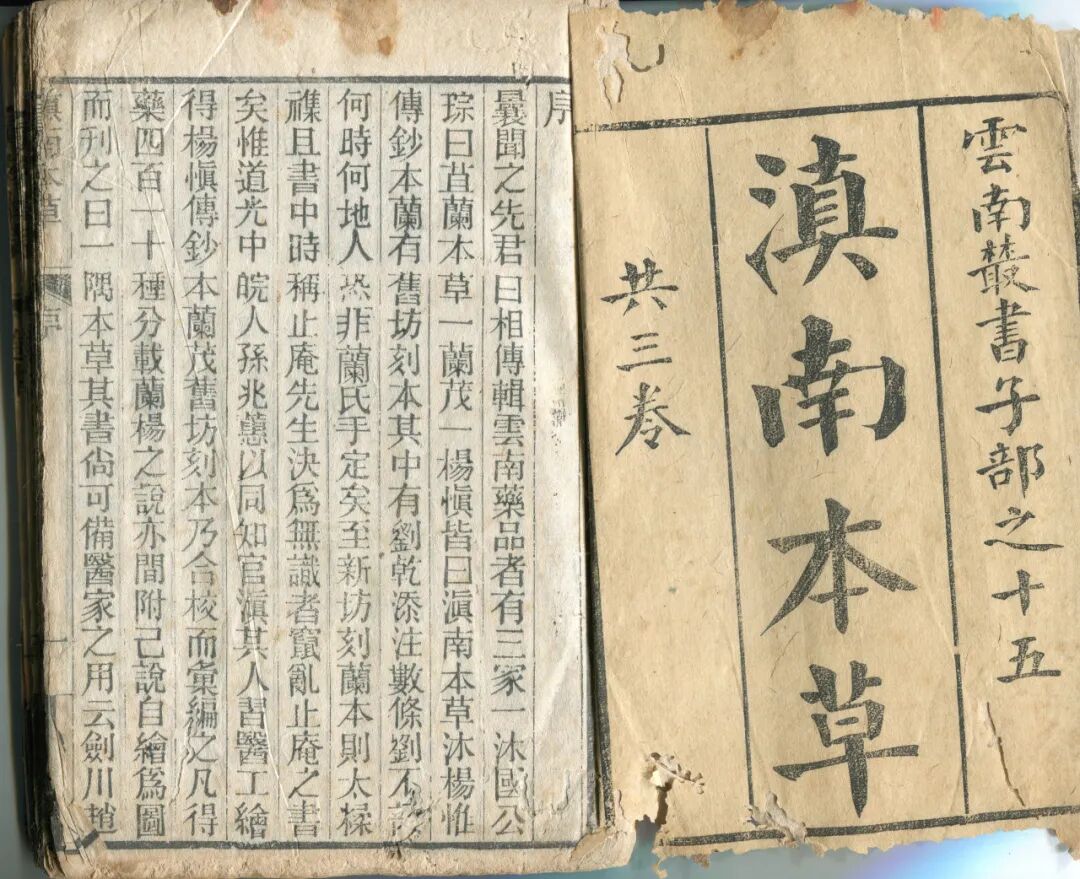 雲南叢書子部之十五
滇南本草
共三卷
序
曩聞之先君曰相傳輯雲南藥品者有三家一沐國公
琮曰苴蘭本草一蘭茂一楊愼皆曰滇南本草沐楊惟
傳鈔本蘭有舊坊刻本其中有劉乾添注數條劉不
何時何地人恐非蘭氏手定矣至新坊刻蘭本則太糅
襍且書中時稱止庵先生決爲無識者竄亂止庵之書
矣惟道光中皖人孫兆蕙以同知官滇其人習醫工繪
得楊愼傳鈔本蘭茂舊坊刻本乃合校而彙編之凡得
藥四百一十種分載蘭楊之說亦間附己說自繪爲圖
而刊之曰一隅本草其書尚可備醫家之用云劍川趙
滇南本草 序 一